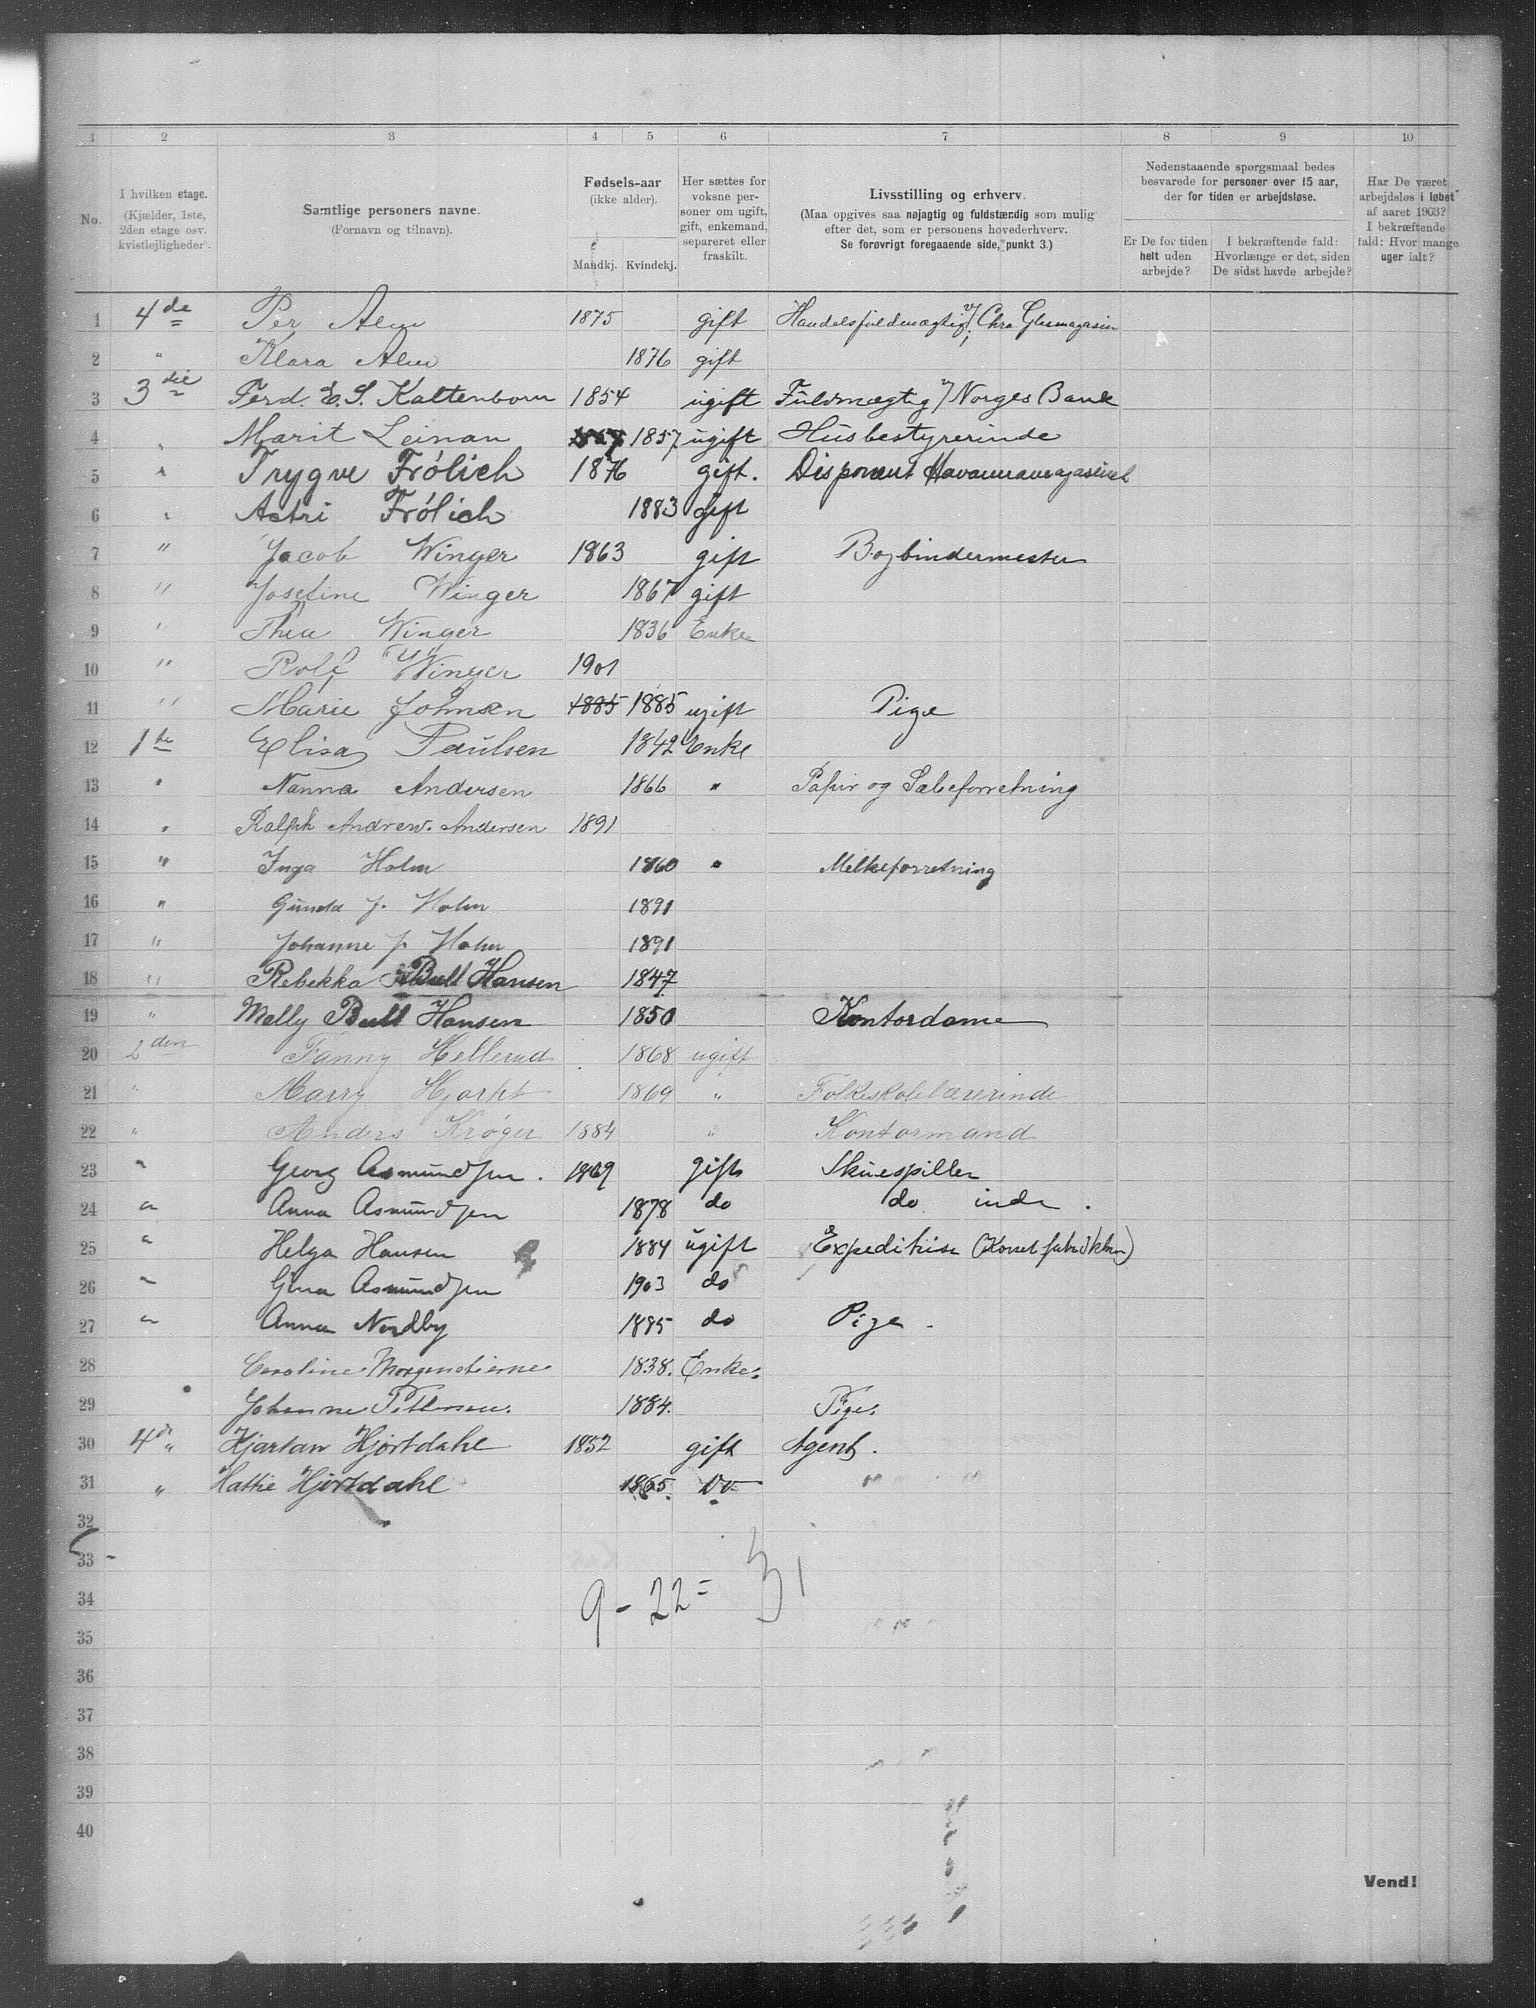 1 2 3 4 5 6 7 8 9 10
No.
I hvilken etage.
(Kjælder, 1ste,
2den etage osv.
kvistlejligheder).
Samtlige personers navne.
(Fornavn og tilnavn).
Fødsels-aar
(ikke alder).
Mandkj. Kvindekj.
Her sættes for
voksne per-
soner om ugift,
gift, enkemand,
separeret eller
fraskilt.
Livsstilling og erhverv.
(Maa opgives saa nøjagtig og fuldstændig som mulig
efter det, som er personens hovederhverv.
Se forøvrigt foregaaende side, punkt 3.)
Nedenstaaende spørgsmaal bedes
besvarede for personer over 15 aar,
der for tiden er arbejdsløse.
Er De for tiden
helt uden
arbejde?
I bekræftende fald:
Hvorlænge er det, siden
De sidst havde arbejde?
Har De været
arbejdsløs i løbet
af aaret 1903?
I bekræftende
fald: Hvor mange
uger ialt?
1 4de Per Alm 1875 gift Handelsfuldmægtig v/ Chra Glasmagasin
2 " Klara Alm 1876 gift
3 3die Ferd. E. S. Kaltenborn 1854 ugift Fuldmægtig v/ Norges Bank
4 " Marit Leinan 1857 1857 ugift Husbestyrerinde
5 " Trygve Frölich 1876 gift. Disponent Havannamagasinet
6 " Astri Frölich 1883 gift
7 " Jacob Winger 1863 gift Bogbindermester
8 " Josefine Winger 1867 gift
9 " Thea Winger 1836 Enke
10 " Rolf Winger 1901
11 " Marie Johnsen 1885 1885 ugift Pige
12 1ste Elisa Paulsen 1842 Enke
13 " Nanna Andersen 1866 " Papir og Sæbeforretning
14 " Ralph Andrew. Andersen 1891
15 " Inga Holm 1860 " Melkeforretning
16 " Gunda J. Holm 1891
17 " Johanne J. Holm 1891
18 " Rebekka Bull Hansen 1847
19 " Melly Bull Hansen 1850 Kontordame
20 2den Fanny Hellerud 1868 ugift
21 " Marry Hjorht 1869 " Folkeskolelærerinde
22 " Anders Krøger 1884 " Kontormand
23 " Georg Asmundsen. 1869 gift Skuespiller
24 " Anna Asmundsen 1878 do do inde.
25 " Helga Hansen 1884 ugift Expeditrise (Korsetfabrikken)
26 " Gina Asmundsen 1903 do
27 " Anna Nordby 1885 do Pige.
28 Caroline Morgenstierne 1838. Enke.
29 Johanne Pettersen. 1884. Pige.
30 4de " Hjartan Hjortdahl 1852 gift Agent.
31 " Hattie Hjortdahl 1865. Do
32
33
34 9 - 22 = 31
35
36
37
38
39
40
Vend!